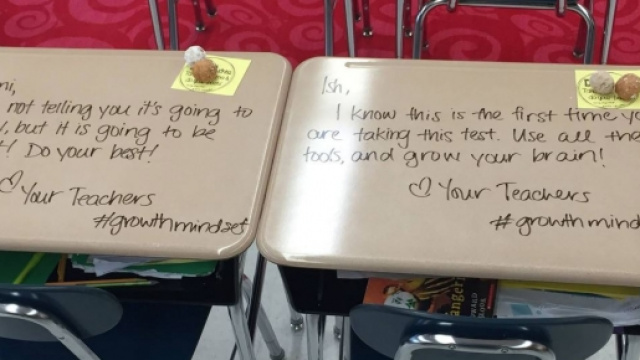 ni,
not telling you it's going to
, but it is going to be
! Do your best!
♡ Your Teachers
#growthmindset
Ish,
I know this is the first time yo
are taking this test. Use all the
tools, and grow your brain!
♡ Your Teachers
#growthmind